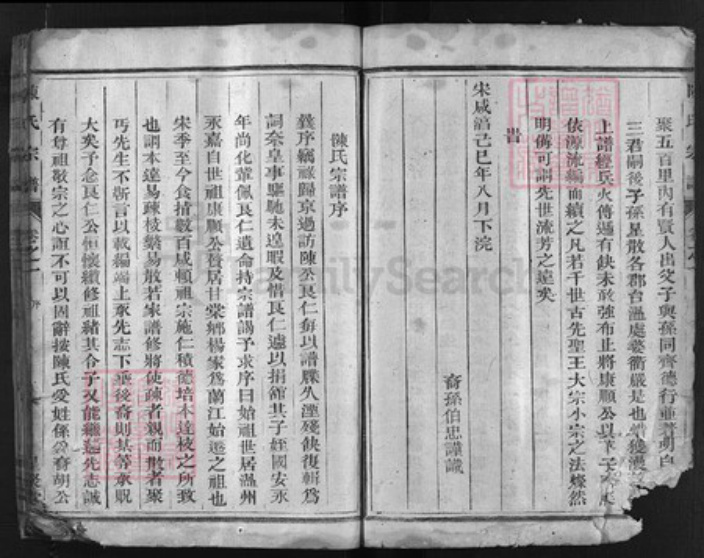 聚五百里內有賢人出父子與孫同齊德行並著明白
三君嗣後子孫星散各郡台溫處婺衢嚴是也
上譜經兵火傳遞有缺未敢強布止將康順公以下子
依源流編而續之凡若干世古先聖王大宗小宗之法燦然
明備可謂先世流芳之遠矣
旹
宋咸淳己巳年八月下浣
裔孫伯忠謹識
陳氏宗譜序
余竊祿歸京過訪陳公良仁每以譜牒久湮殘缺復輯為
詞奈皇事驅馳未遑暇及惜良仁遽以捐館其子姪國安永
年尚化等佩良仁遺命持宗譜謁予求序曰始祖世居溫州
永嘉自世祖康順公贅居甘棠鄉楊家為蘭江始遷之祖也
宋季至今食指數百咸賴祖宗施仁積德培本達枝之所致
也謂本遠易疎枝繁易散若家譜修將使疎者親而散者聚
丐先生不靳言以載編端上承先志下垂後裔則某等承貺
大矣予念良仁公恒懷纘修祖緒其令子又能繼述先志誠
有尊祖敬宗之心誼不可以固辭按陳氏受姓係舜裔胡公
陳氏宗譜